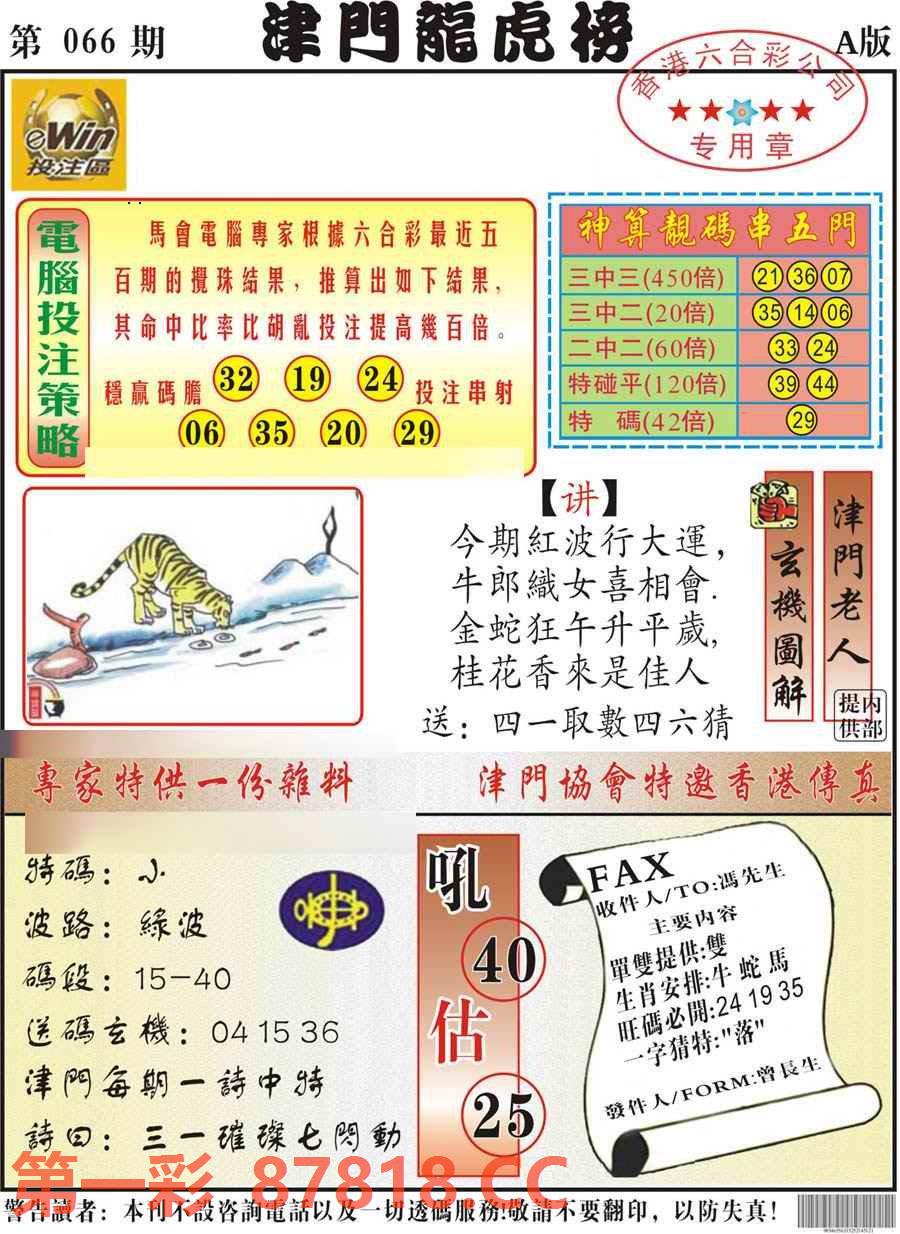 第 066 期
津門龍虎榜
A版
香港六合彩公司
专用章
eWin
投注區
電腦投注策略
馬會電腦專家根據六合彩最近五
百期的攪珠結果，推算出如下結果，
其命中比率比胡亂投注提高幾百倍。
穩贏碼膽 32 19 24 投注串射
06 35 20 29
神算靚碼串五門
三中三(450倍) 21 36 07
三中二(20倍) 35 14 06
二中二(60倍) 33 24
特碰平(120倍) 39 44
特 碼(42倍) 29
【讲】
今期紅波行大運，
牛郎織女喜相會.
金蛇狂午升平歲,
桂花香來是佳人
送：四一取數四六猜
玄機圖解
津門老人
内部提供
專家特供一份雜料
津門協會特邀香港傳真
特碼：小
波路：綠波
碼段：15-40
送碼玄機：04 15 36
津門每期一詩中特
詩曰：三一璀璨七閃動
吼
40
估
25
FAX
收件人/TO:馮先生
主要内容
單雙提供:雙
生肖安排:牛 蛇 馬
旺碼必開:24 19 35
一字猜特:"落"
發件人/FORM:曾長生
第一彩 87818.CC
警告讀者：本刊不設咨詢電話以及一切透碼服務!敬請不要翻印，以防失真！